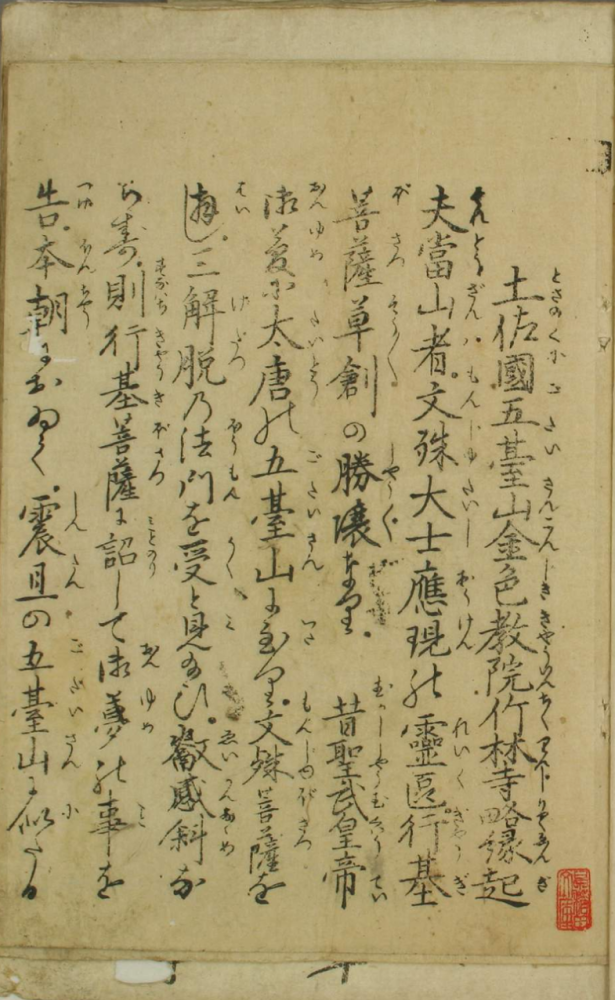 土佐國五臺山金色教院竹林寺略縁起
夫當山者文殊大士應現の靈區行基
菩薩草創の勝壤なり。昔聖武皇帝
御夢に太唐の五臺山に至り。文殊菩薩を
拜し。三解脱乃法門を受と見給ひ。叡感斜な
らず。則行基菩薩に詔して御夢の事を
告。本朝におゐて。震旦の五臺山に似たる